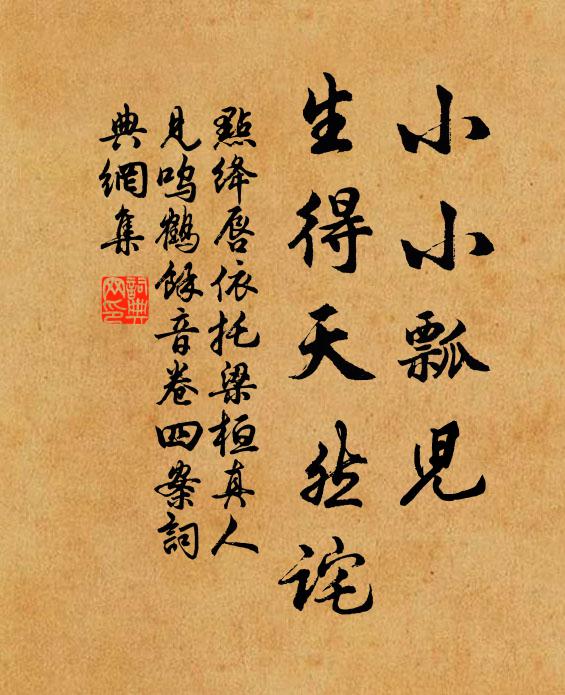 小小瓢兒
生得天然詫
點絳唇依托梁桓真人
見鳴鶴餘音卷四案詞
典網集
詞典網印